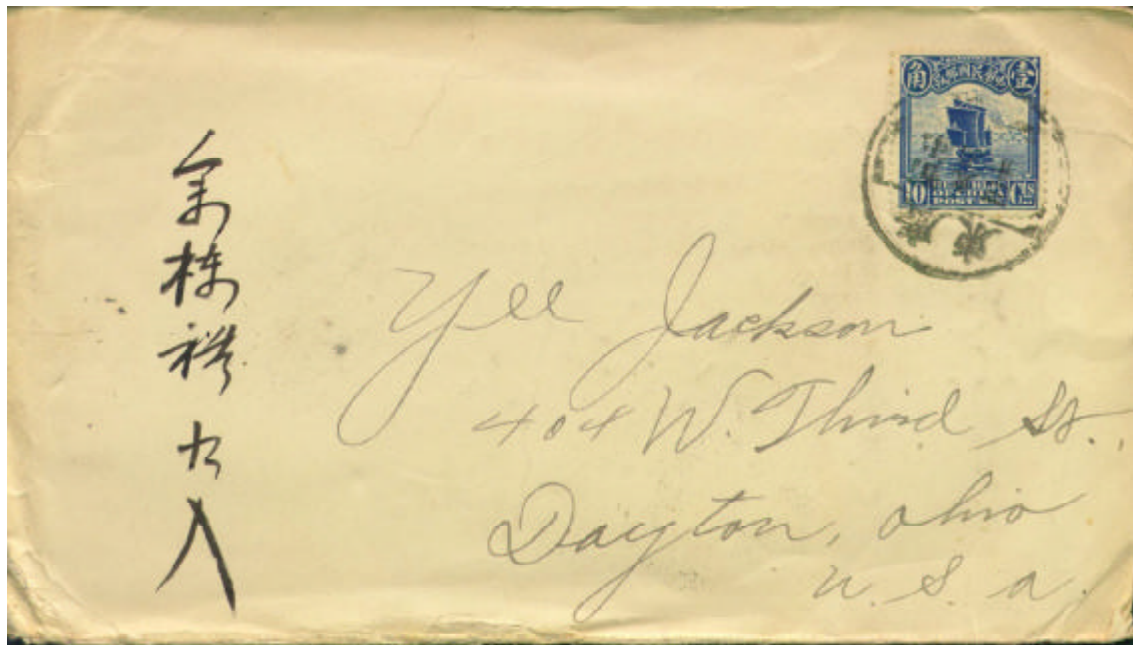 角 中華民國郵政 壹
10 Cts
余棟禮
入
Yee Jackson
404 W. Third St.,
Dayton, Ohio
U. S. A.